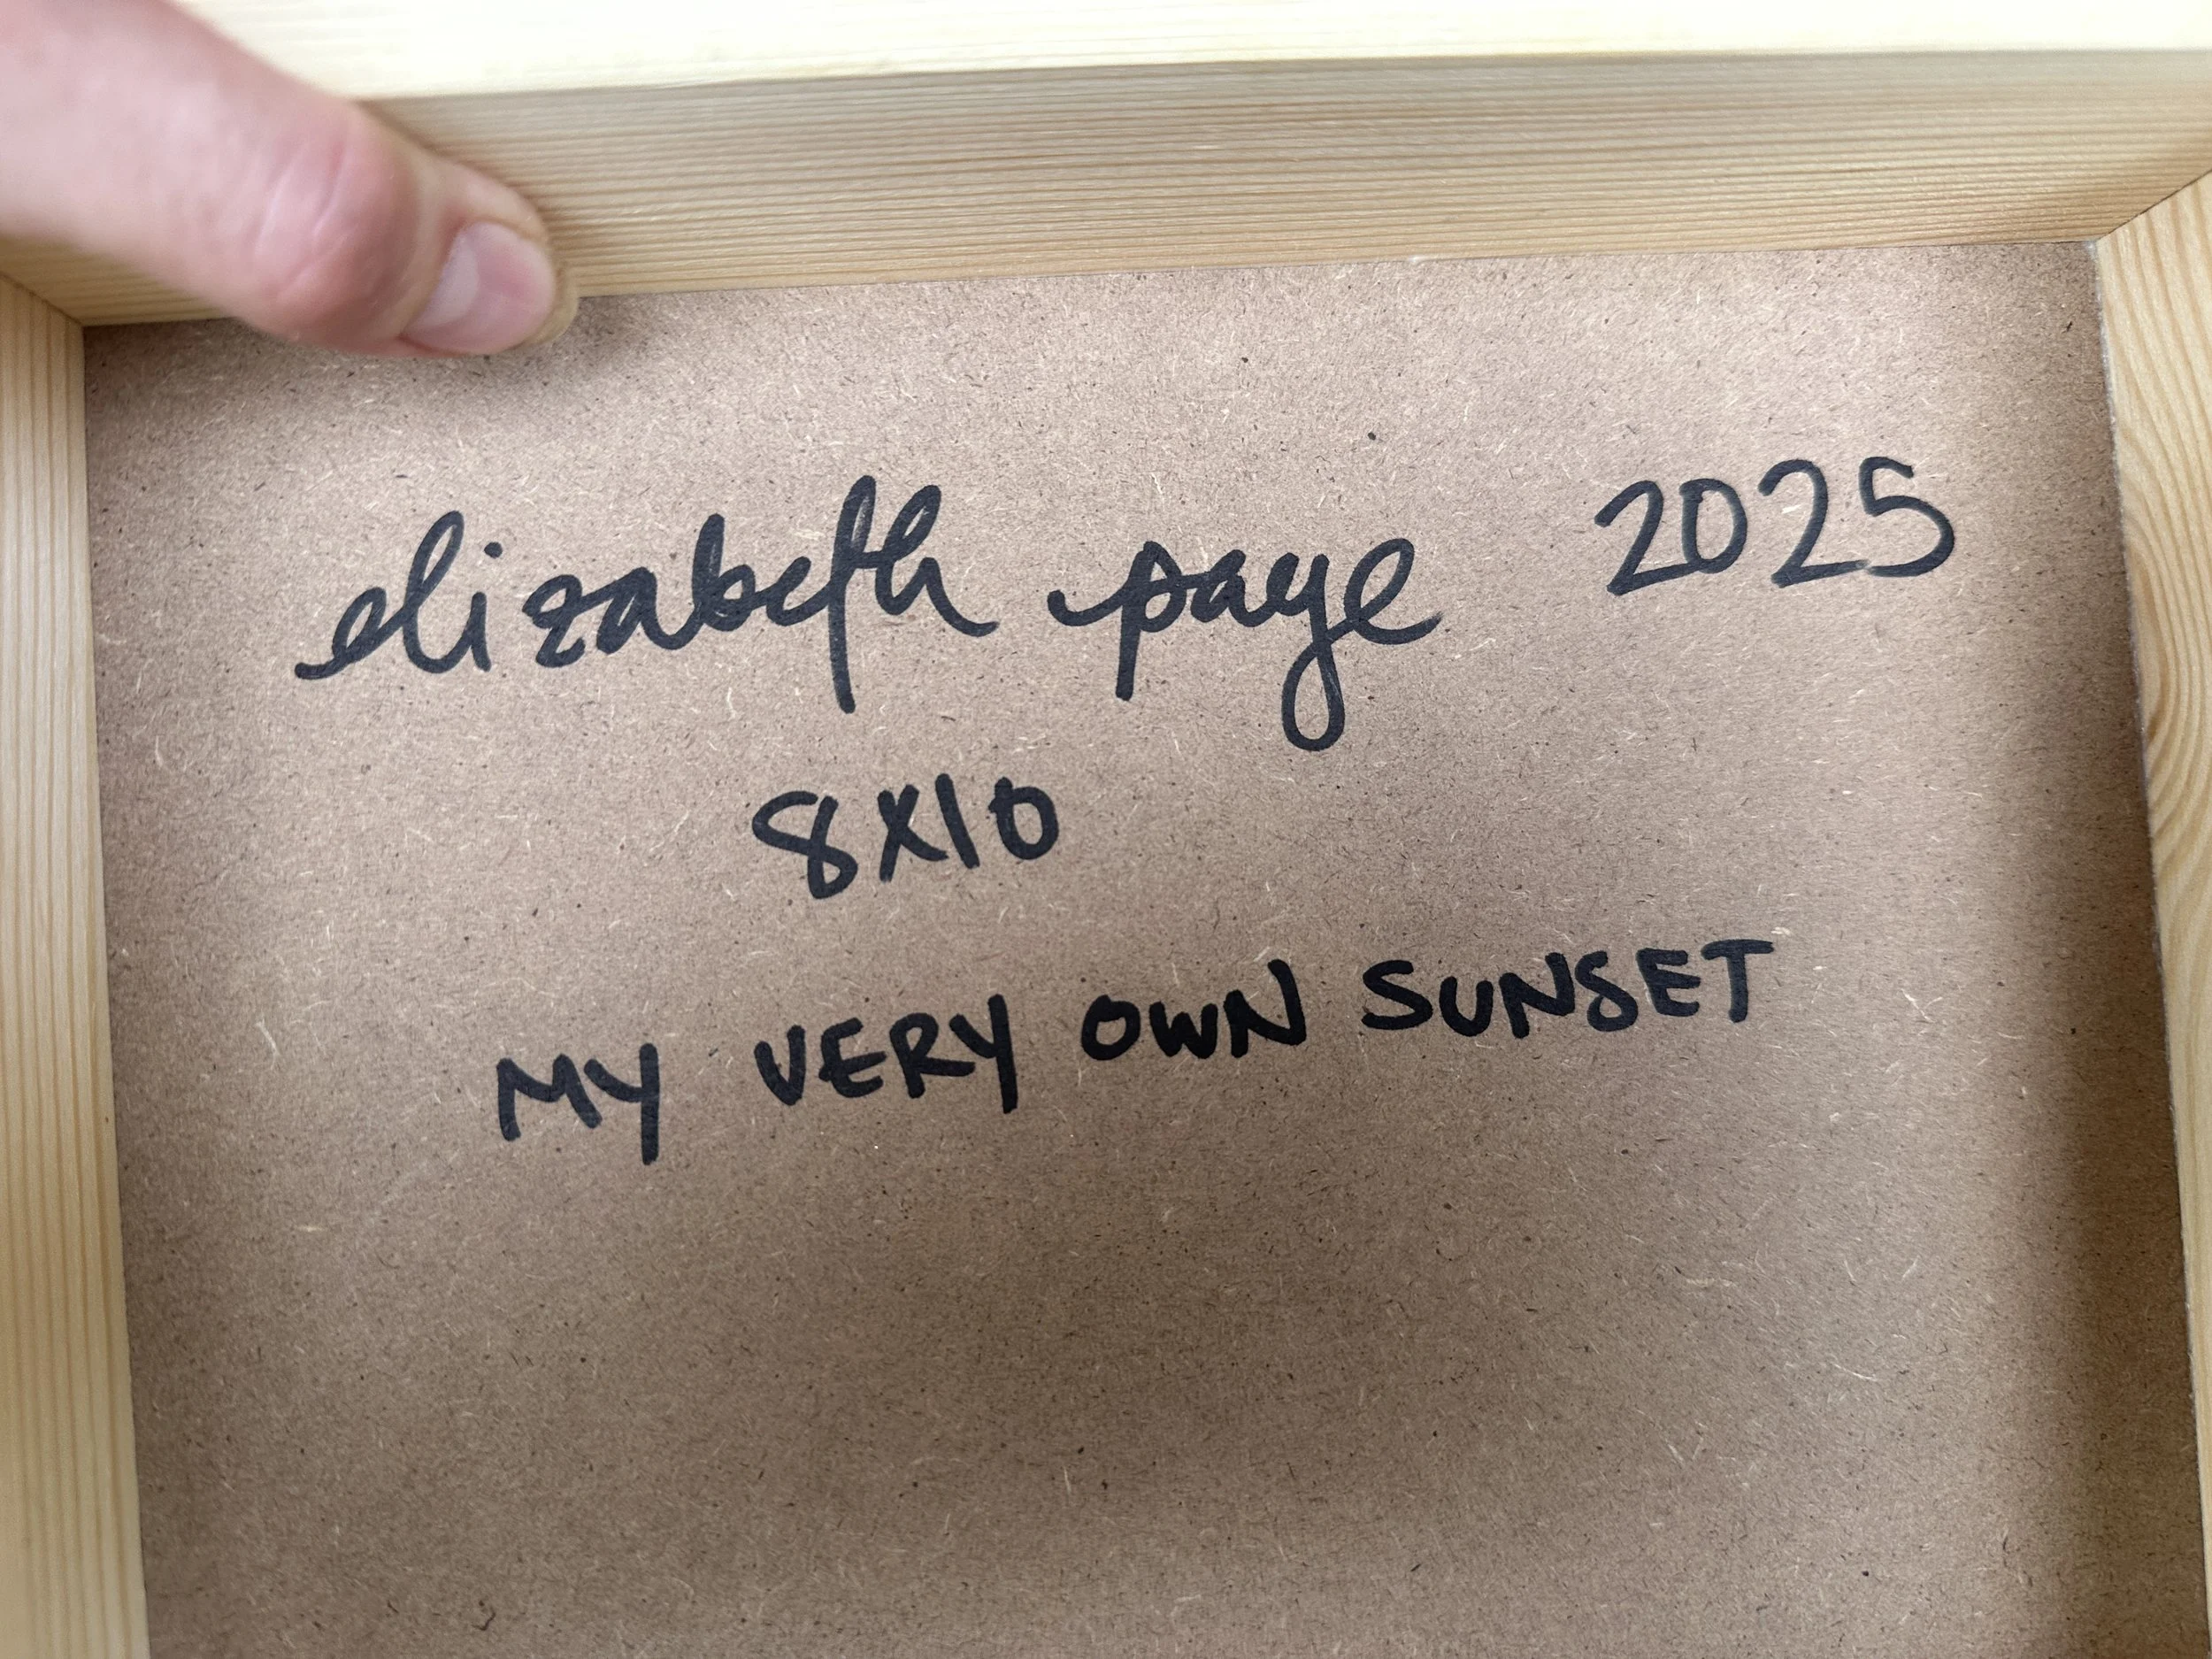 elizabeth page 2025
8x10
MY VERY OWN SUNSET